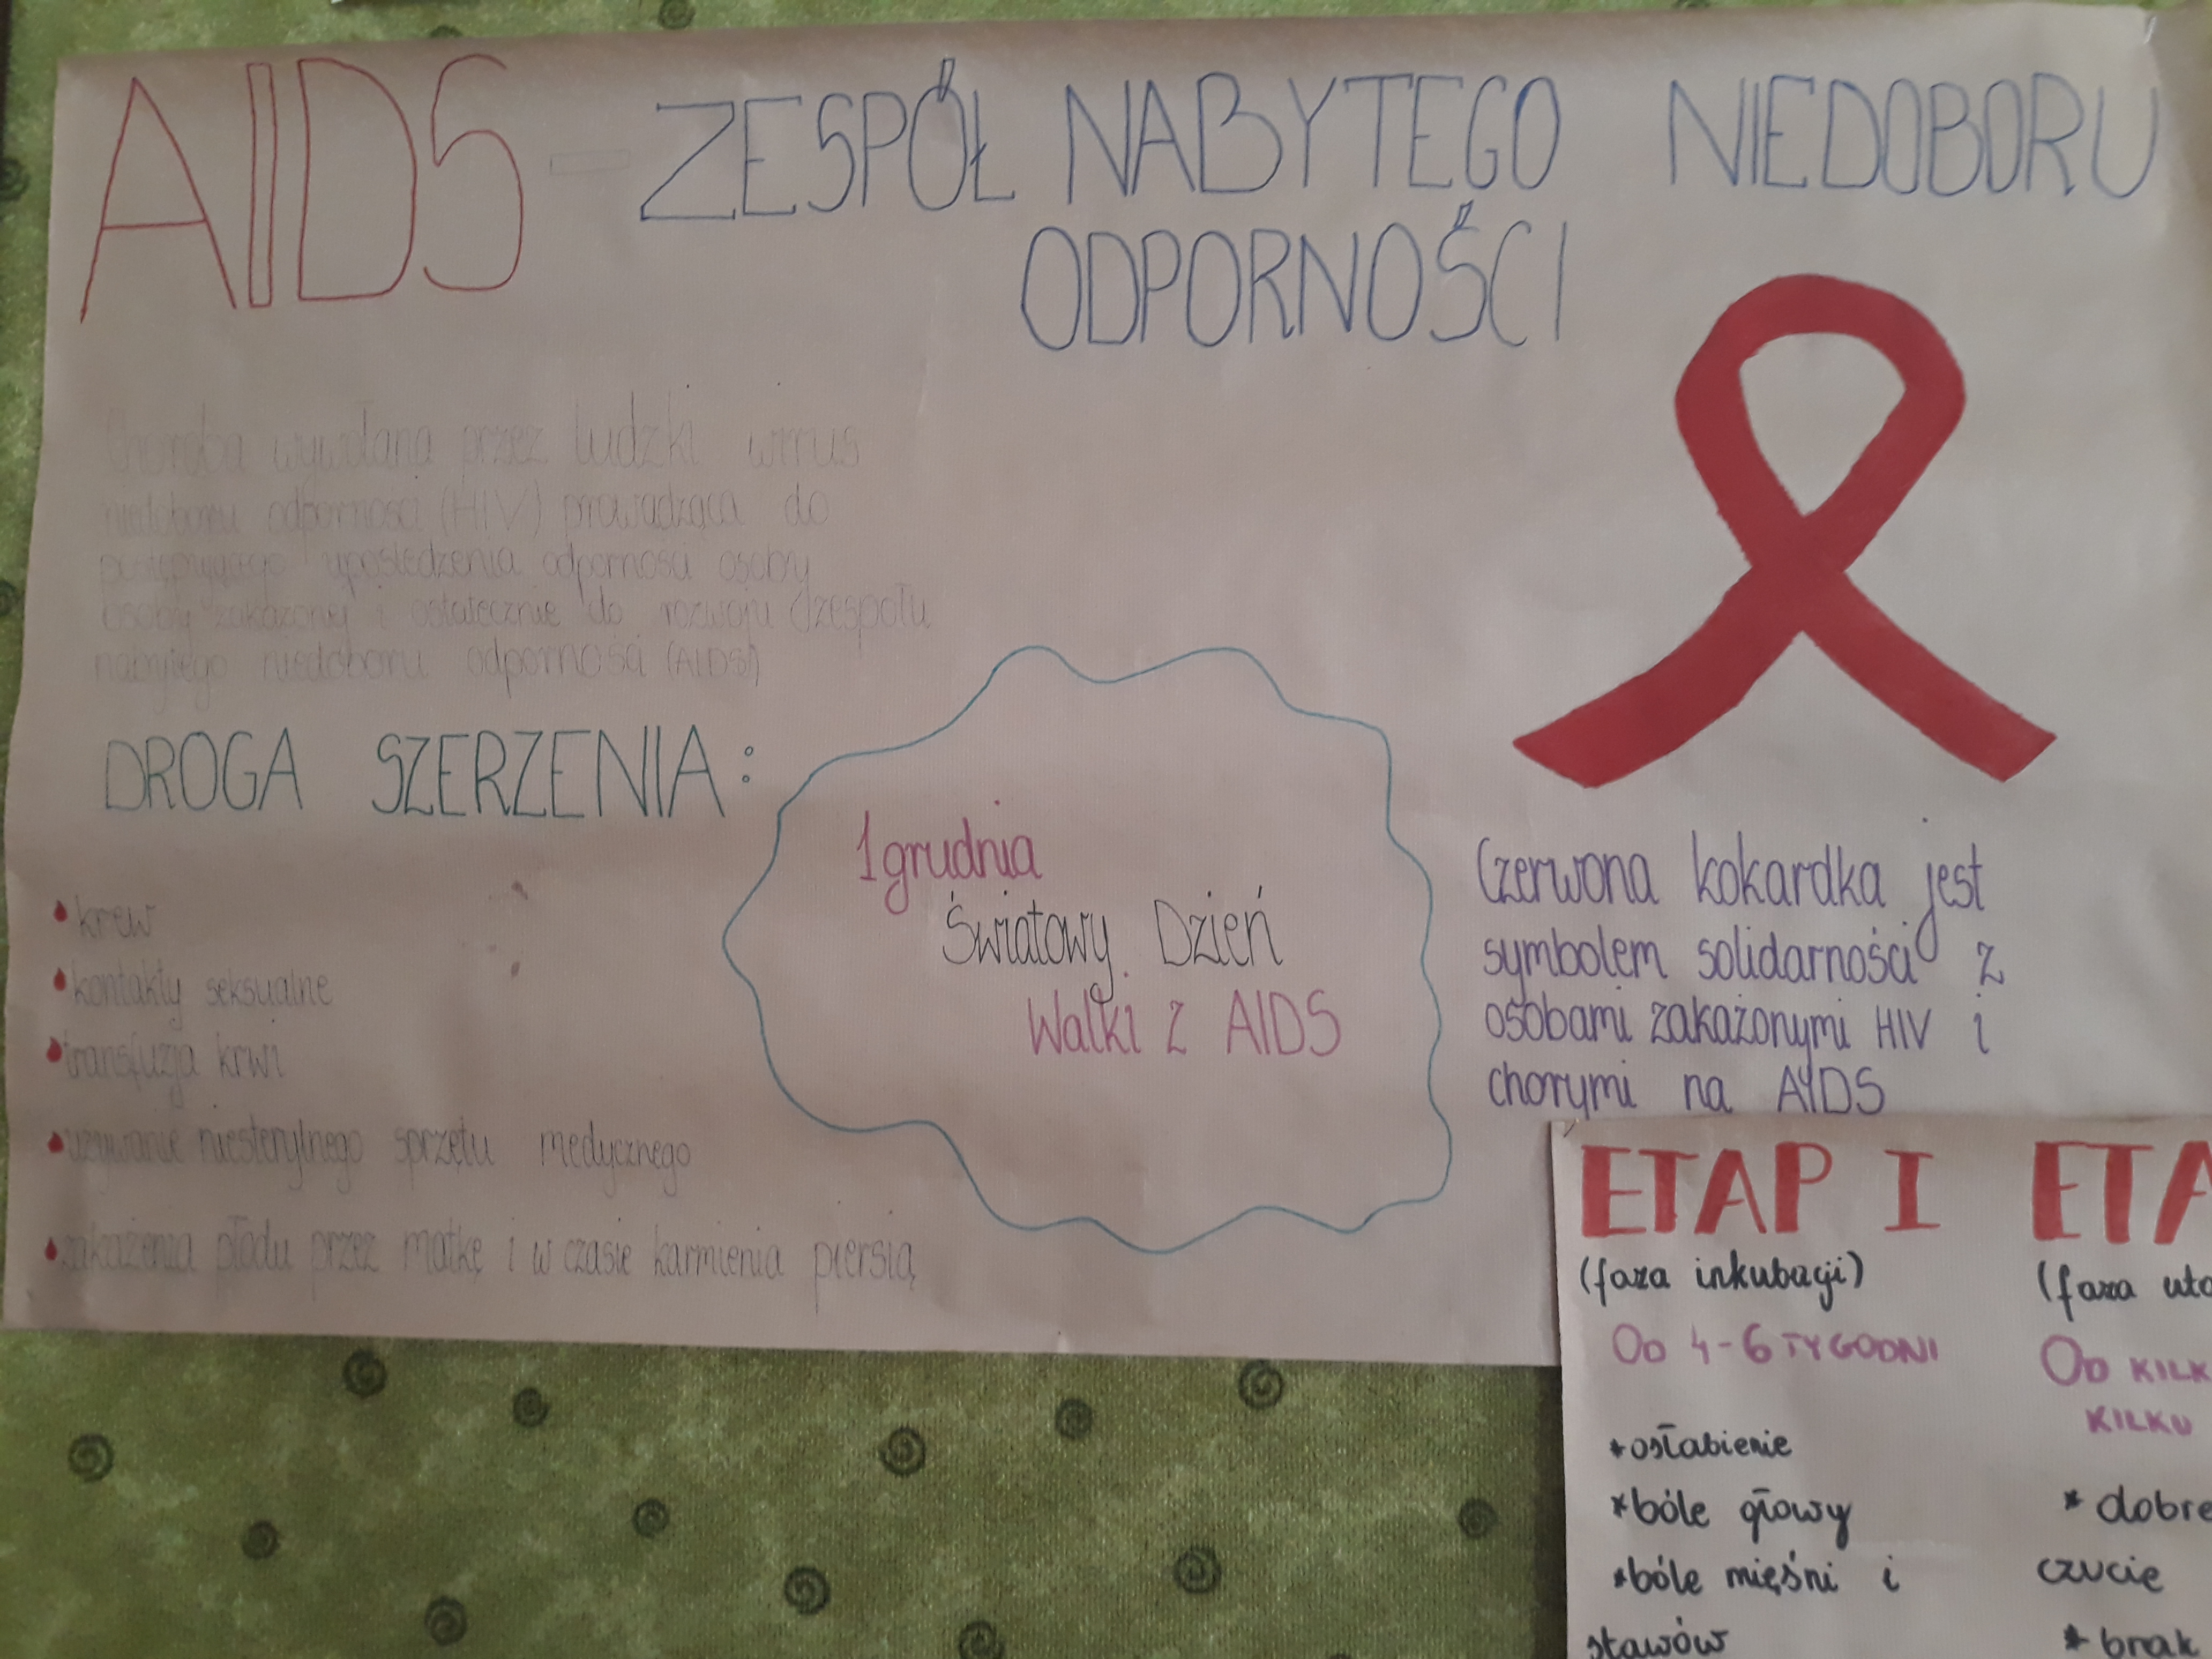 AIDS - ZESPÓŁ NABYTEGO NIEDOBORU
ODPORNOŚCI
Choroba wywołana przez ludzki wirus
niedoboru odporności (HIV) prowadząca do
postępującego upośledzenia odporności osoby
osoby zakażonej i ostatecznie do rozwoju zespołu
nabytego niedoboru odporności (AIDS)
DROGA SZERZENIA:
krew
kontakty seksualne
transfuzja krwi
używanie niesterylnego sprzętu medycznego
zakażenia płodu przez matkę i w czasie karmienia piersią
1 grudnia
Światowy Dzień
Walki z AIDS
Czerwona kokardka jest
symbolem solidarności z
osobami zakażonymi HIV i
chorymi na AIDS
ETAP I
(faza inkubacji)
OD 4-6 TYGODNI
*osłabienie
*bóle głowy
*bóle mięśni i
stawów
ETA
(faza uta
OD KILK
KILKU
* dobre
czucie
* brak